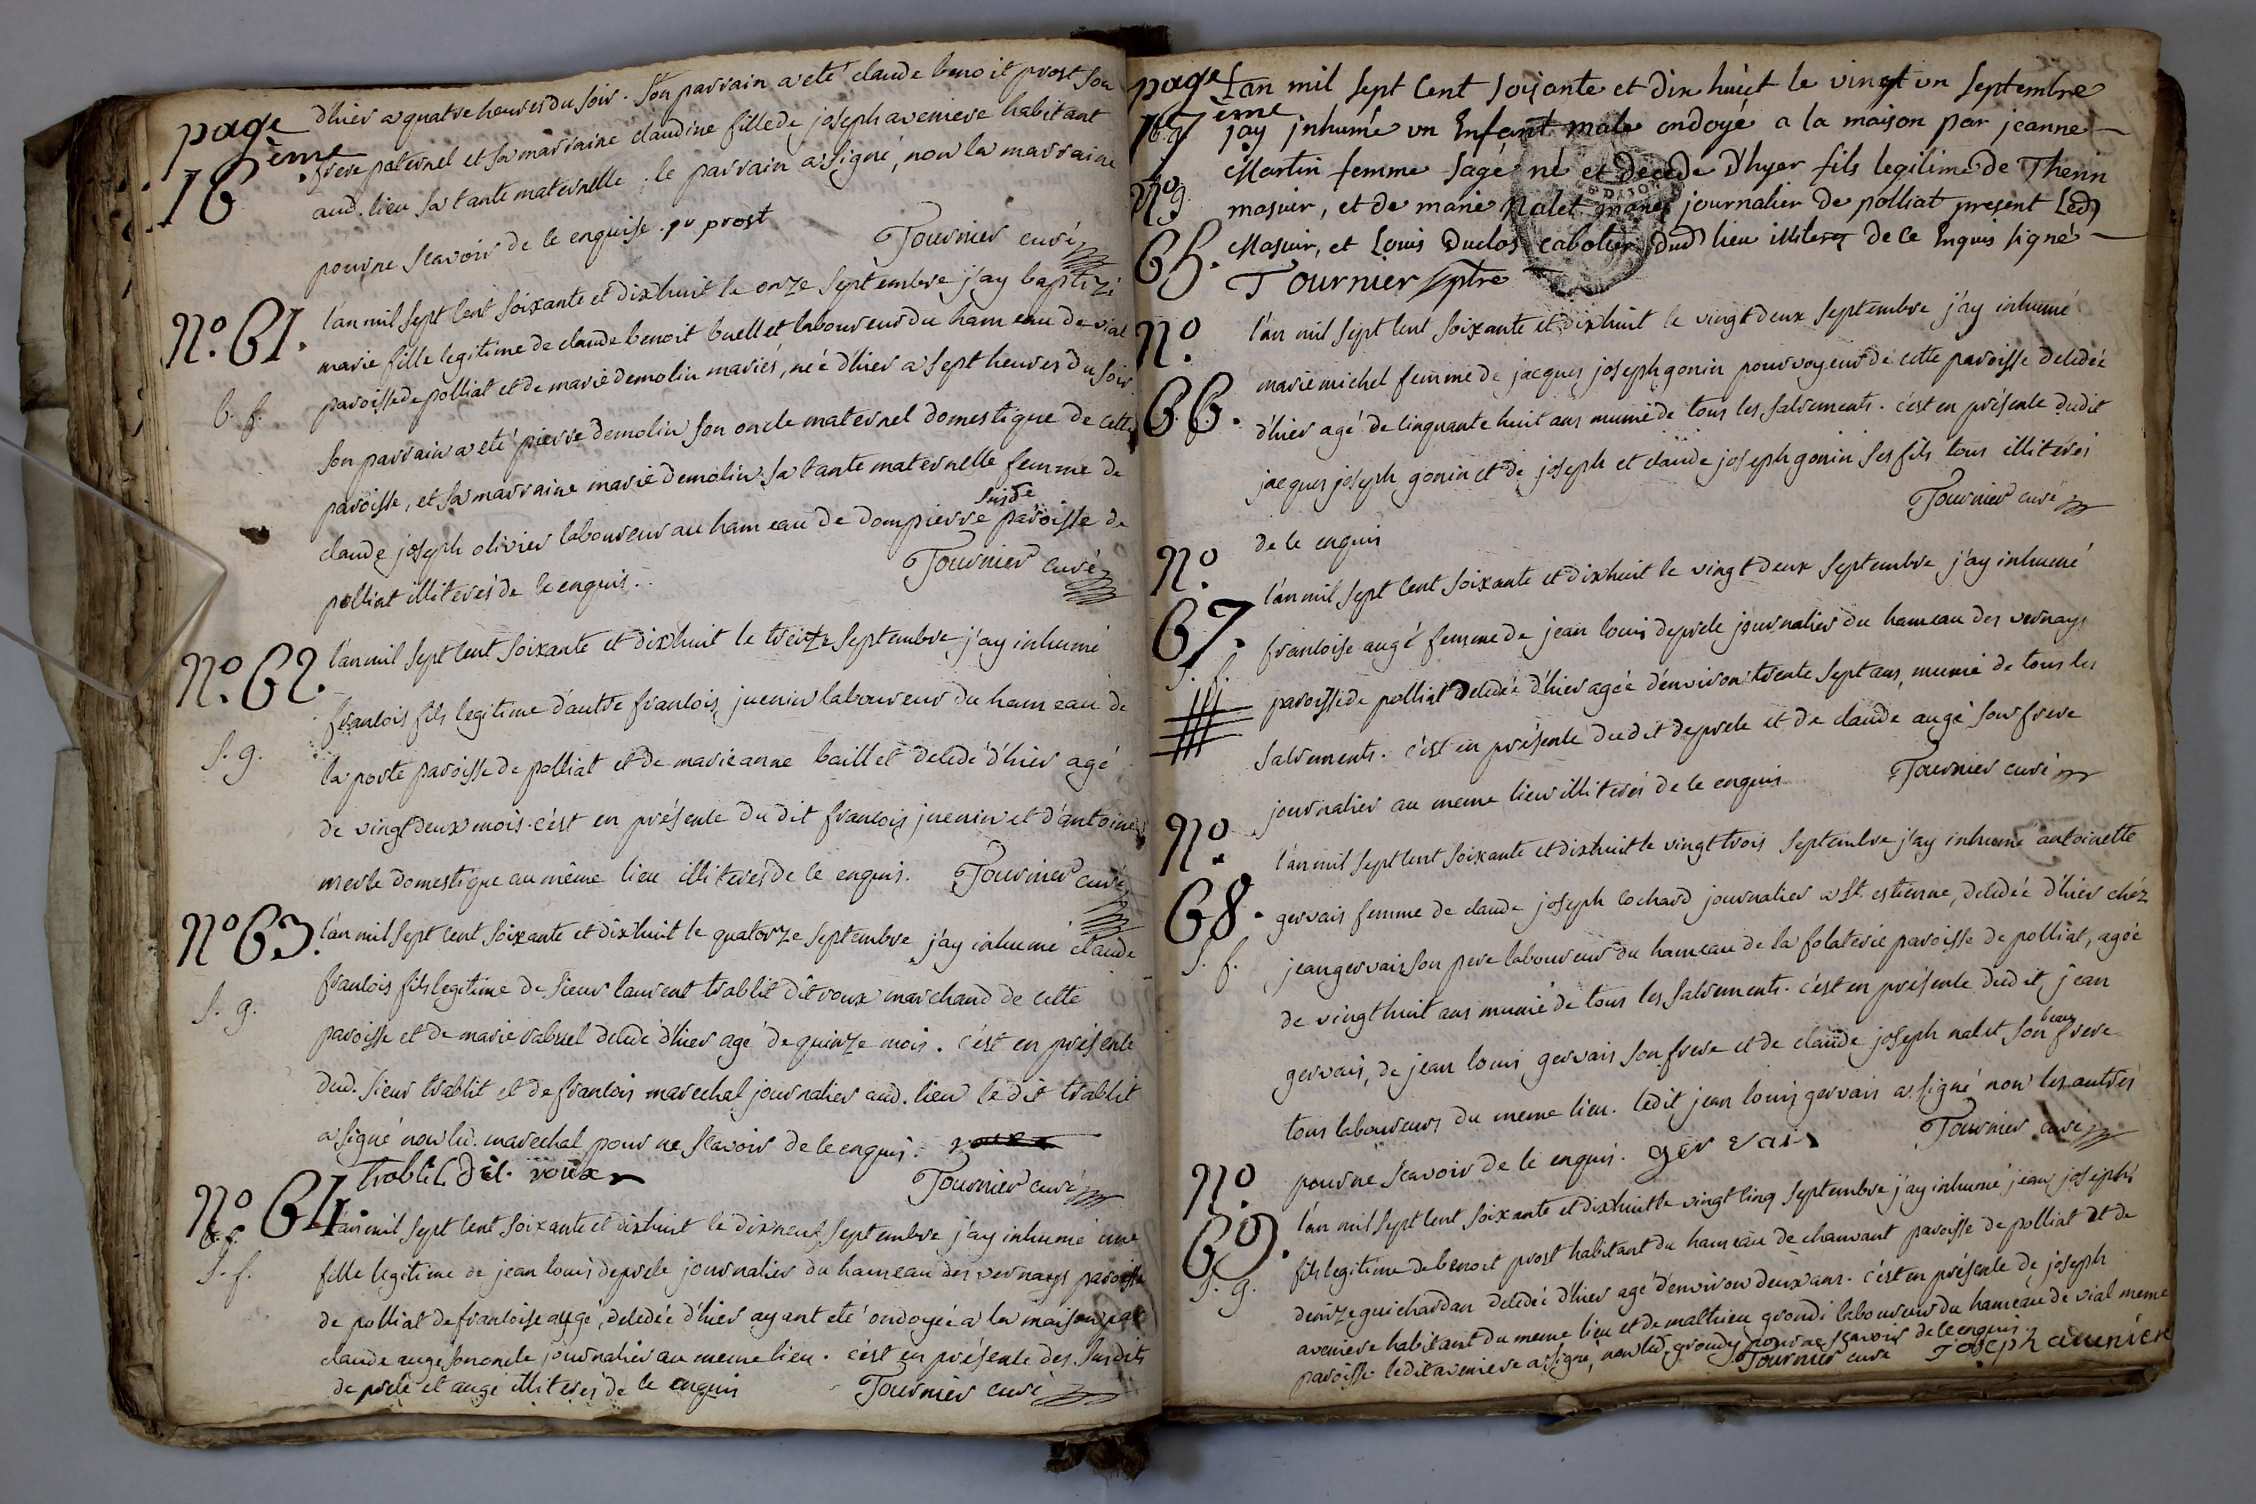 page
16 ème
d'hier a quatre heures du soir. Son parrain a eté claude benoit prost son
frere paternel et sa marraine claudine fille de joseph aveniere habitant
aud. lieu sa tante maternelle, le parrain a signé, non la marraine
pour ne scavoir de ce enquise. prost
Tournier curé
No. 61.
b. f.
l'an mil sept cent soixante et dixhuit le onze septembre j'ay baptizé
marie fille legitime de claude benoit buellet laboureur du hameau de vial
paroisse de polliat et de marie demolin mariés, née d'hier a sept heures du soir
son parrain a eté pierre demolin son oncle maternel domestique de cette
paroisse, et sa marraine marie demolin sa tante maternelle femme de
claude joseph olivier laboureur au hameau de dompierre susde paroisse de
polliat illiterés de ce enquis.
Tournier curé
No. 62.
s. g.
l'an mil sept cent soixante et dixhuit le treize septembre j'ay inhumé
francois fils legitime d'autre francois juenin laboureur du hameau de
la poste paroisse de polliat et de marieanne baillet decedé d'hier agé
de vingt deux mois. c'est en présence du dit francois juenin et d'antoine
merle domestique au même lieu illiterés de ce enquis. Tournier curé
No 63.
s. g.
l'an mil sept cent soixante et dixhuit le quatorze septembre j'ay inhumé claude
francois fils legitime de sieur laurent trablit dit roux marchand de cette
paroisse et de marie rabuel decedé d'hier agé de quinze mois. c'est en présence
dud. sieur trablit et de francois marechal journalier aud. lieu le dit trablit
a signé non led. marechal pour ne scavoir de ce enquis. roux
trablit dit roux
Tournier curé
No 64.
s. f.
l'an mil sept cent soixante et dixhuit le dixneuf septembre j'ay inhumé une
fille legitime de jean louis deprele journalier du hameau des vernays paroisse
de polliat de francoise augé, decedée d'hier ayant eté ondoyée a la maison par
claude auge son oncle journalier au meme lieu. c'est en présence des susdits
deprele et augé illiterés de ce enquis Tournier curé
page
17 ème
No
65.
g.
Lan mil sept cent soixante et dix huict le vingt un septembre
jay jnhumé un Enfant male ondoyé a la maison par jeanne
Martin femme sage né et decede d'hyer fils legitime de Thenin
masuir, et de marie Nalet mariés journalier de polliat present Led
Masuir, et Louis Duclos cabotier dud lieu illiteres de ce Enquis signé
Tournier ptre
No
66.
l'an mil sept cent soixante et dixhuit le vingt deux septembre j'ay inhumé
marie michel femme de jacques joseph gonin pourvoyeur de cette paroisse decedée
d'hier agé de cinquante huit ans munie de tous les sacrements. c'est en présence dudit
jacques joseph gonin et de joseph et claude joseph gonin ses fils tous illiterés
de ce enquis
Tournier curé
No.
67.
s. f.
l'an mil sept cent soixante et dixhuit le vingt deux septembre j'ay inhumé
francoise augé femme de jean louis deprele journalier du hameau des vernays
paroisse de polliat decedée d'hier agée d'environ trente sept ans, munie de tous les
sacrements. c'est en présence dudit deprele et de claude augé son frere
journalier au meme lieu illiterés de ce enquis Tournier curé
No
68.
s. f.
l'an mil sept cent soixante et dixhuit le vingt trois septembre j'ay inhumé antoinette
gervais femme de claude joseph cochard journalier a st. estienne, decedée d'hier chéz
jean gervais son pere laboureur du hameau de la folaterie paroisse de polliat, agée
de vingt huit ans munie de tous les sacrements. c'est en présence dudit jean
gervais, de jean louis gervais son frere et de claude joseph nalet son beau frere
tous laboureurs du meme lieu. ledit jean louis gervais a signé non les autres
pour ne scavoir de ce enquis. gervais Tournier curé
No.
69.
s. g.
l'an mil sept cent soixante et dixhuit le vingt cinq septembre j'ay inhumé jean joseph
fils legitime de benoit prost habitant du hameau de chanvant paroisse de polliat et de
denize guichardan decedée d'hier agé d'environ deux ans. c'est en présence de joseph
aveniere habitant du meme lieu et de mathieu groudi laboureur du hameau de vial meme
paroisse ledit aveniere a signé, non led. groudy pour ne scavoir de ce enquis
Tournier curé Joseph auenier